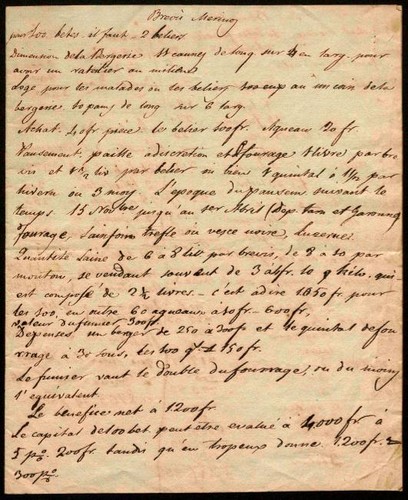 Brevis Merinos
pour 100 bêtes il faut 2 beliers
Dimension de la Bergerie 11 cannes de long sur 4 en larg. pour
avoir un ratelier au milieu
Loge pour les malades ou les beliers au un coin de la
bergerie 60 pams de long sur 6 larg.
Achat. 40fr piece. les belier 100fr. Agneau 20fr.
Pansement, paille a discretion et fourrage 1 livre par bre
vis et liv par belier ou bien 1 quintal à 1 1/2 par
hivern ou 3 moy. L'epoque du pansem suivant le
temps. 15 Novbre jusqu'au 1er Abril (Dep. tarn et Garonne)
Fourrage, Sainfoin trefle ou vesce noire, Lucerne.
Quantité laine de 6 à 8 liv par brevis, de 8 a 10 par
mouton, se vendant souvent de 3 a 4fr. le kilo. qui
est compose de 2 1/4 livres. - c'est adire 1050fr. pour
les 100, en outre 60 agneaux à 10fr - 600fr,
valeur du fumier 300fr
Depenses. un berger de 250 à 300fr et le quintal de fou
rrage à 30 sous, les 100 q 150fr.
Le fumier vaut le double du fourrage, ou du moins
l'equivalent
Le benefice net à 1200fr
Le capital de 100 bet. peut etre evalué à 4000fr à
5 p% 200fr. tandis qu'en tropeau donne 1200fr.
300 p%